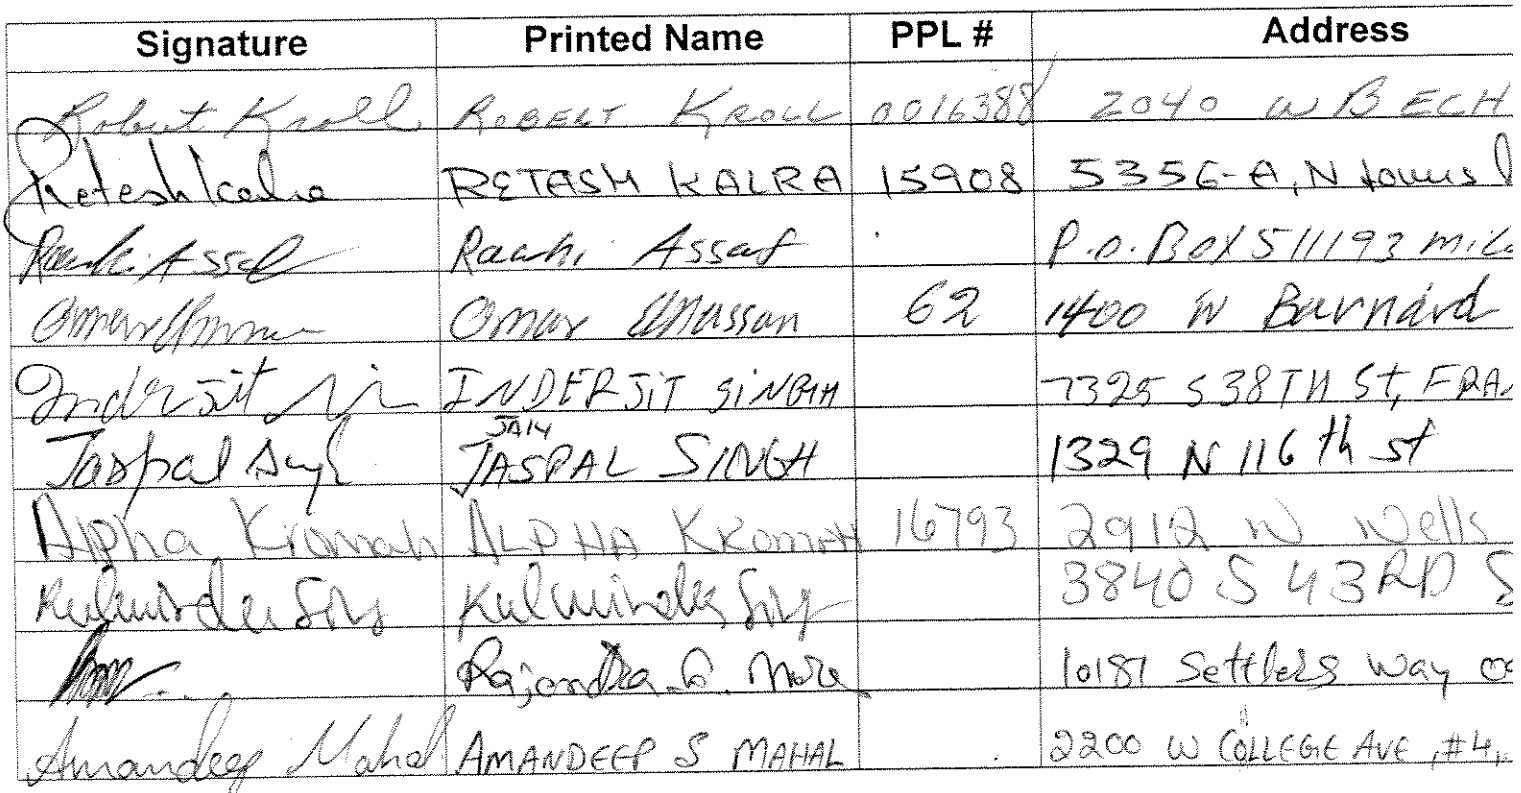 Signature Printed Name PPL # Address
Robert Kroll ROBERT KROLL 0016388 2040 W BECH
Retesh Kalra RETASH KALRA 15908 5356-A, N
Raaki Assaf Raaki Assaf P.O. Box 511193 Mil
Omar Omar Elhassan 62 1400 W Barnard
Inderjit INDERJIT SINGH 7325 S 38TH St, FRA
Jaspal Singh JASPAL SINGH 1329 N 116th st
Alpha Kromah ALPHA KROMAH 16793 2912 W Wells
Kulwinder Kulwinder 3840 S 43RD S
Rajendra More 10181 Settlers Way
Amandeep Mahal AMANDEEP S MAHAL 2200 W COLLEGE AVE, #4,